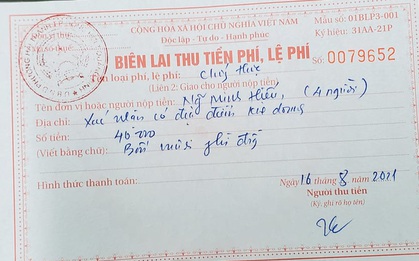 CỘNG HÒA XÃ HỘI CHỦ NGHĨA VIỆT NAM
Độc lập - Tự do - Hạnh phúc
Mẫu số: 01BLP3-001
Ký hiệu: 31AA-21P
BIÊN LAI THU TIỀN PHÍ, LỆ PHÍ
Tên loại phí, lệ phí: Chứng thực
Số: 0079652
(Liên 2: Giao cho người nộp tiền)
Tên đơn vị hoặc người nộp tiền: Minh Hiếu, (4 người)
Địa chỉ: Xác nhận có địa điểm
Số tiền: 40 000
(Viết bằng chữ): Bốn mươi
Hình thức thanh toán:
Ngày 16 tháng 8 năm 2021
Người thu tiền
(Ký, ghi rõ họ tên)